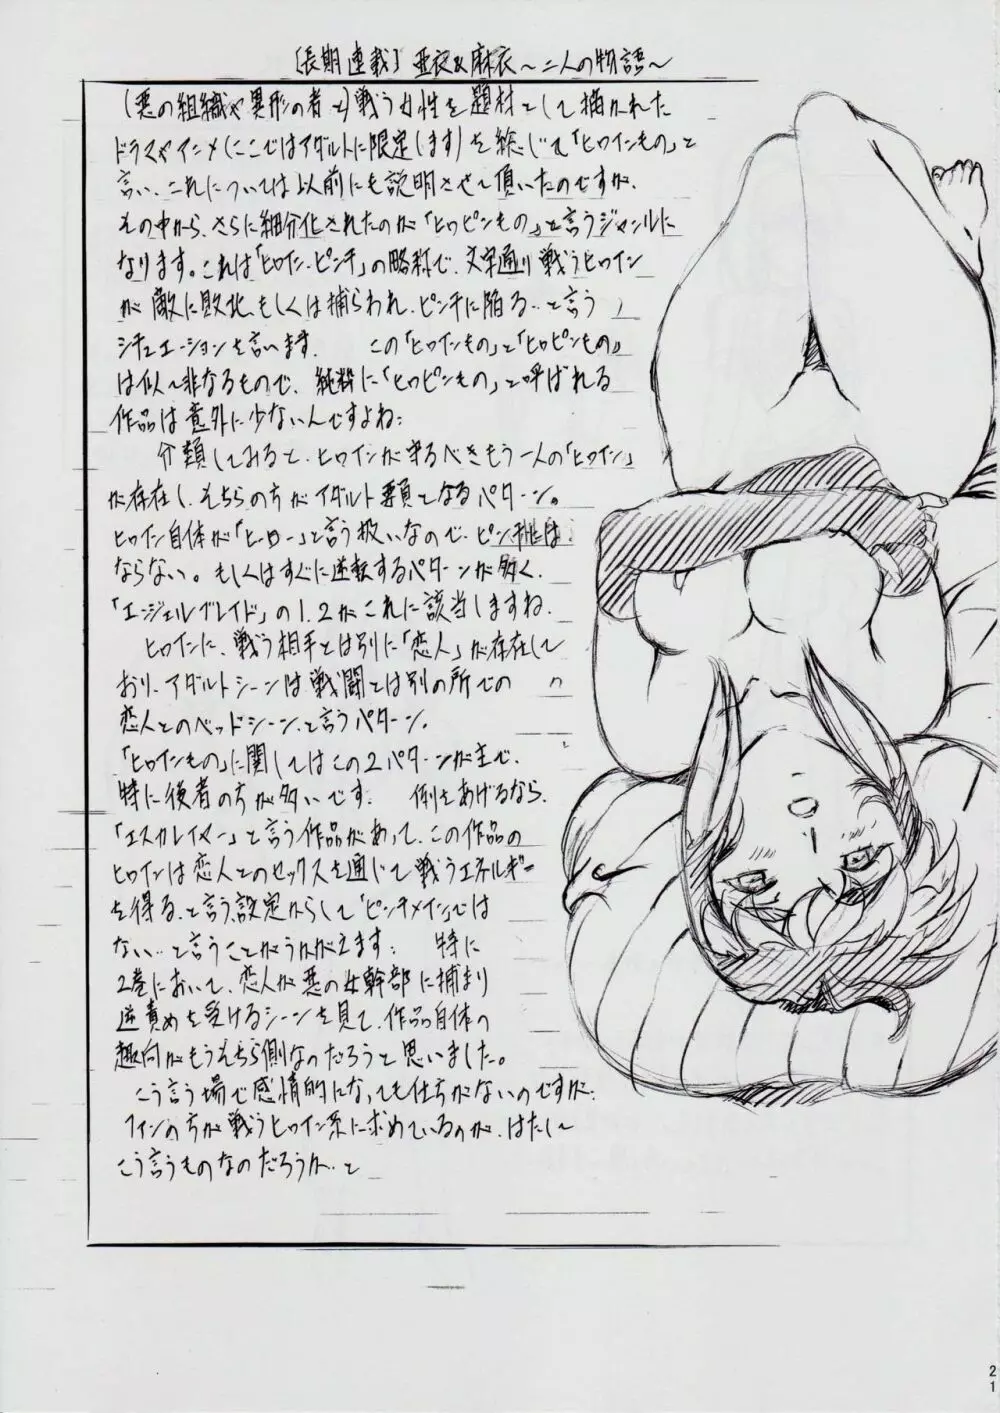 〔長期連載〕 亜衣&麻衣〜二人の物語〜
(悪の組織や異形の者と)戦う女性を題材として描かれた
ドラマやアニメ(ここではアダルトに限定します)を総じて「ヒロインもの」と
言い、これについては以前にも説明させて頂いたのですが、
その中から、さらに細分化されたのが「ヒロピンもの」と言うジャンルに
なります。これは「ヒロイン・ピンチ」の略称で、文字通り戦うヒロイン
が敵に敗北、もしくは捕らわれ、ピンチに陥る…と言う
シチュエーションを言います。 この「ヒロインもの」と「ヒロピンもの」
は似て非なるもので、純粋に「ヒロピンもの」と呼ばれる
作品は意外に少ないんですよね;
分類してみると、ヒロインが守るべきもう一人の「ヒロイン」
が存在し、そちらの方がアダルト要員となるパターン。
ヒロイン自体が「ヒーロー」と言う扱いなので、ピンチには
ならない。もしくはすぐに逆転するパターンが多く、
「エンジェルブレイド」の1.2がこれに該当しますね。
ヒロインに、戦う相手とは別に「恋人」が存在して
おり、アダルトシーンは戦闘とは別の所での
恋人とのベッドシーン、と言うパターン。
「ヒロインもの」に関してはこの2パターンが主で、
特に後者の方が多いです。 例をあげるなら、
「エスカレイヤー」と言う作品があって、この作品の
ヒロインは恋人とのセックスを通じて戦うエネルギー
を得る、と言う設定からして「ピンチメイン」では
ない…と言うことがうかがえます; 特に
2巻において、恋人が悪の女幹部に捕まり
逆責めを受けるシーンを見て、作品自体の
趣向がもうそちら側なのだろうと思いました。
こう言う場で感情的になっても仕方がないのですが、
ファンの方が戦うヒロイン系に求めているのが、はたして
こう言うものなのだろうか…と
21